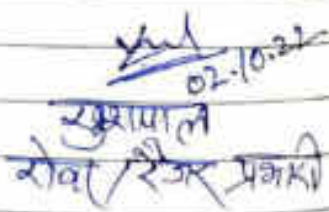 02.10.22
खुशपाल
सेवा/रेंजर प्रभारी